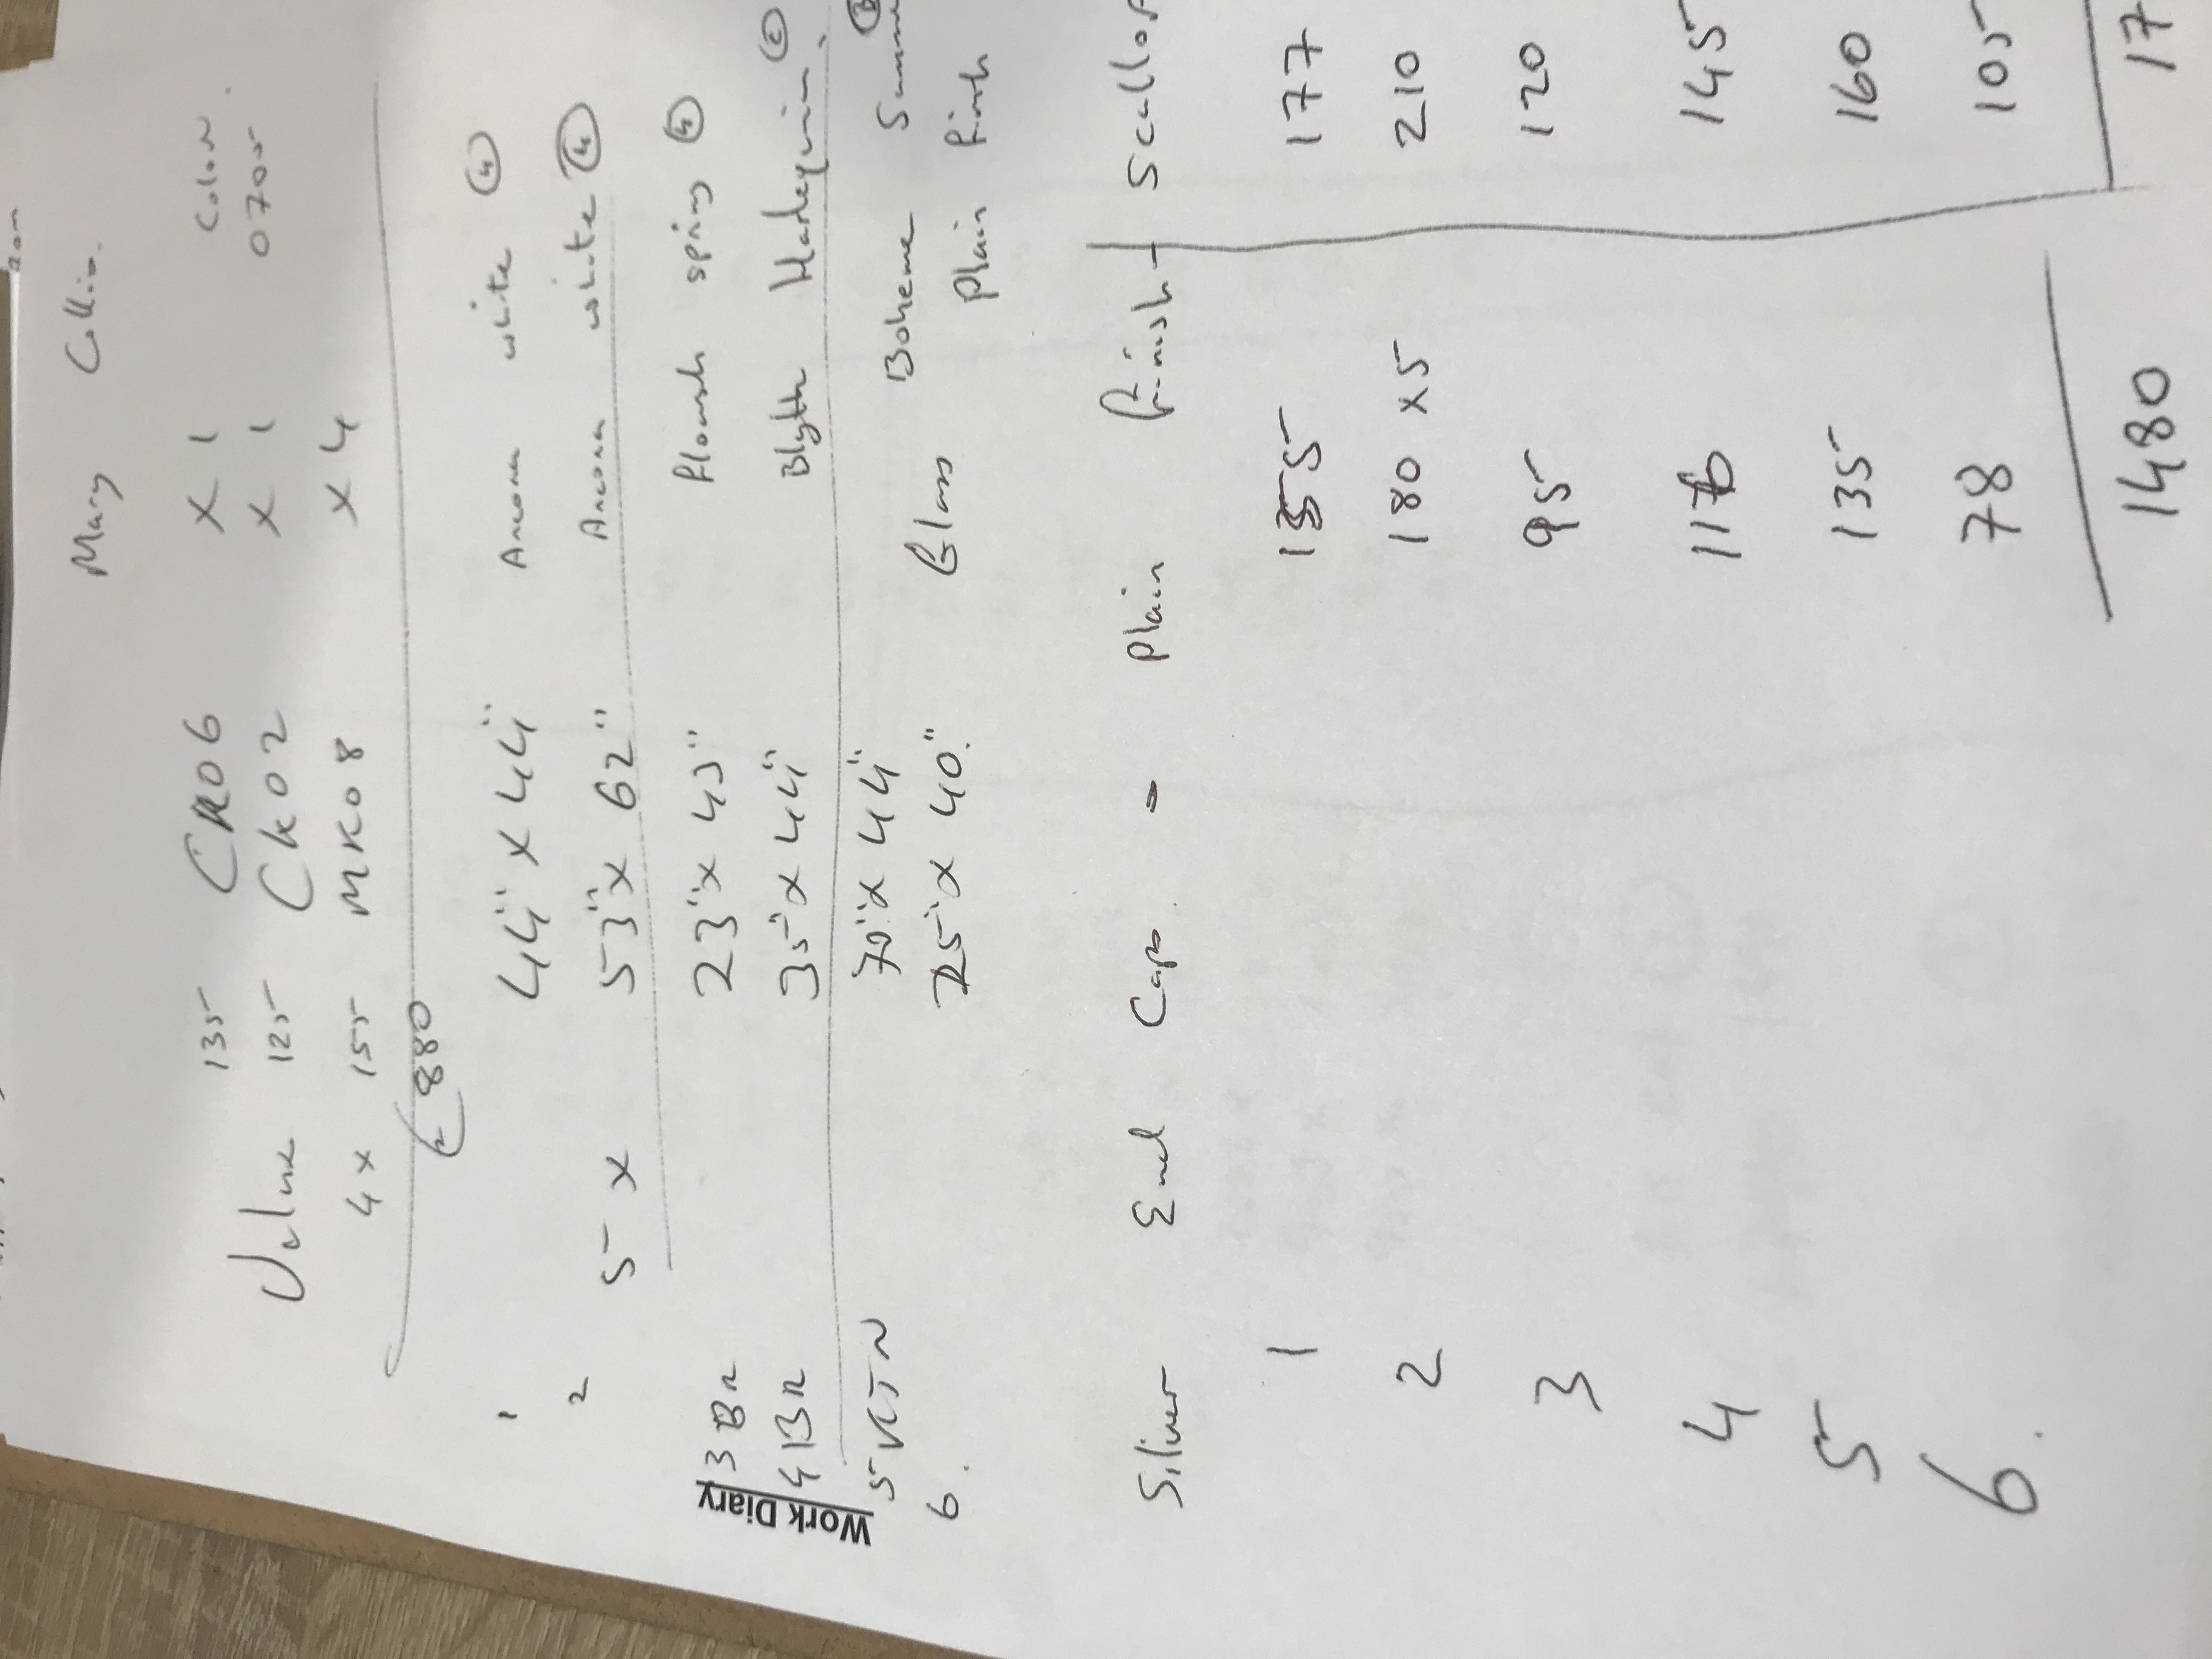 Mary Collin.
135 CK06 x 1 Color
Velux 125 CK02 x 1 0705
4 x 155 MK08 x 4
€880
1 44" x 44" Ancona white (4)
2 5 x 53" x 62" Ancona white (4)
3 BR 23" x 43" Flourish spring
4 BR 35" x 44" Blyth Harlequin
5 KTN 70" x 44" Boheme
6. 25" x 40" Glass Plain Finish
Work Diary
Silver End Cap - Plain Finish + Scallop
1 155 177
2 180 x5 210
3 95 120
4 145
5 135 160
6. 78 105
1480 17